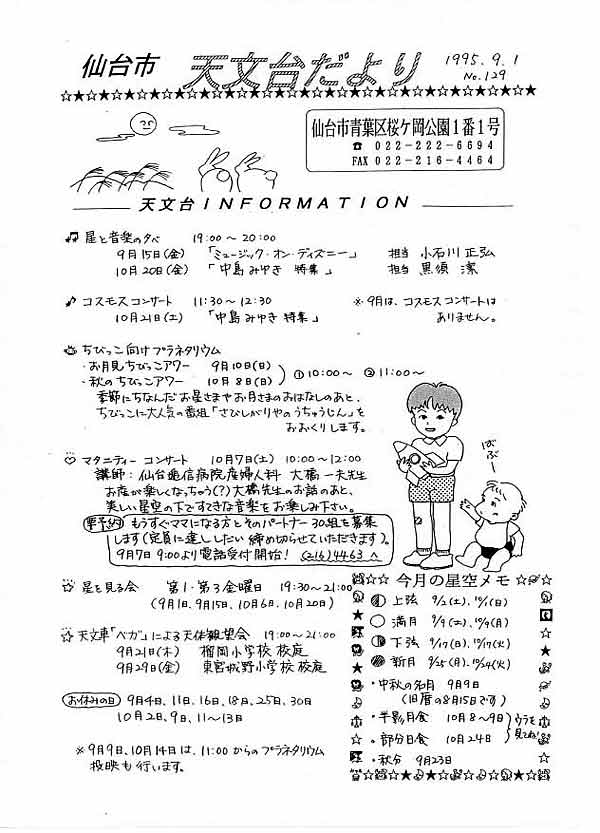 仙台市 天文台だより 1995.9.1
No.129
☆★☆★☆★☆★☆★☆★☆★☆★☆★☆★☆★☆★☆★☆★☆★☆★☆★☆★☆
仙台市青葉区桜ケ岡公園1番1号
☎ 022-222-6694
FAX 022-216-4464
天文台INFORMATION
♫ 星と音楽の夕べ 19:00～20:00
9月15日(金) 「ミュージック・オン・ディズニー」 担当 小石川 正弘
10月20日(金) 「中島みゆき 特集」 担当 黒須 潔
♪ コスモスコンサート 11:30～12:30 ※9月は、コスモスコンサートは
10月21日(土) 「中島みゆき特集」 ありません。
ちびっこ向けプラネタリウム
・お月見ちびっこアワー 9月10日(日)
・秋のちびっこアワー 10月8日(日) ①10:00～ ②11:00～
季節にちなんだお星さまやお月さまのおはなしのあと、
ちびっこに大人気の番組「さびしがりやのうちゅうじん」を
おおくりします。
♡ マタニティー コンサート 10月7日(土) 10:00～12:00
講師：仙台逓信病院産婦人科 大橋一夫先生
お産が楽しくなっちゃう(?)大橋先生のお話のあと、
美しい星空の下ですてきな音楽をお楽しみ下さい。
要予約 もうすぐママになる方とそのパートナー30組を募集
します(定員に達ししだい締め切らせていただきます)。
9月7日9:00より電話受付開始! (216)4463へ
ばぶー
☆ 星を見る会 第1・第3金曜日 19:30～21:00
(9月1日、9月15日、10月6日、10月20日)
☆ 天文車「ベガ」による天体観望会 19:00～21:00
9月21日(木) 榴岡小学校 校庭
9月29日(金) 東宮城野小学校 校庭
お休みの日 9月4日、11日、16日、18日、25日、30日
10月2日、9日、11～13日
※9月9日、10月14日は、11:00からのプラネタリウム
投映も行います。
☆☆ 今月の星空メモ ☆
上弦 9/2(土)、10/1(日)
満月 9/9(土)、10/9(月)
下弦 9/17(日)、10/17(火)
新月 9/25(月)、10/24(火)
・中秋の名月 9月9日
(旧暦の8月15日です)
・半影月食 10月8～9日
・部分日食 10月24日
ウラを
見てね!
・秋分 9月23日